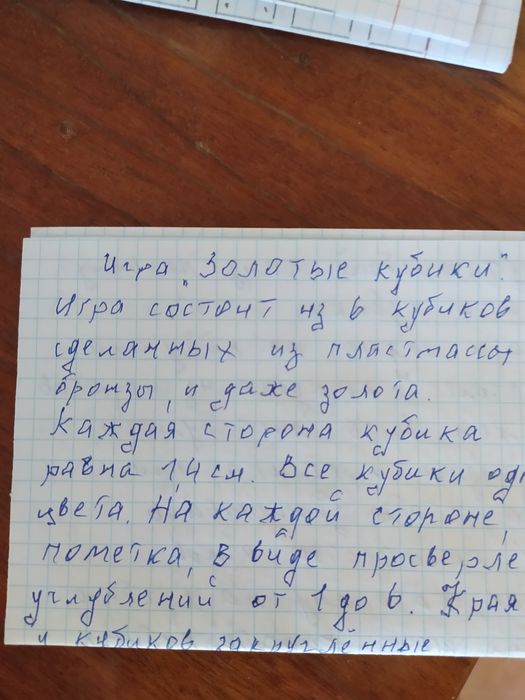 Игра „Золотые кубики".
Игра состоит из 6 кубиков
сделанных из пластмассы
бронзы, и даже золота.
Каждая сторона кубика
равна 1,4 см. Все кубики од
цвета. На каждой стороне,
пометка, в виде просверле
углублений от 1 до 6. Края
у кубиков закруглённые